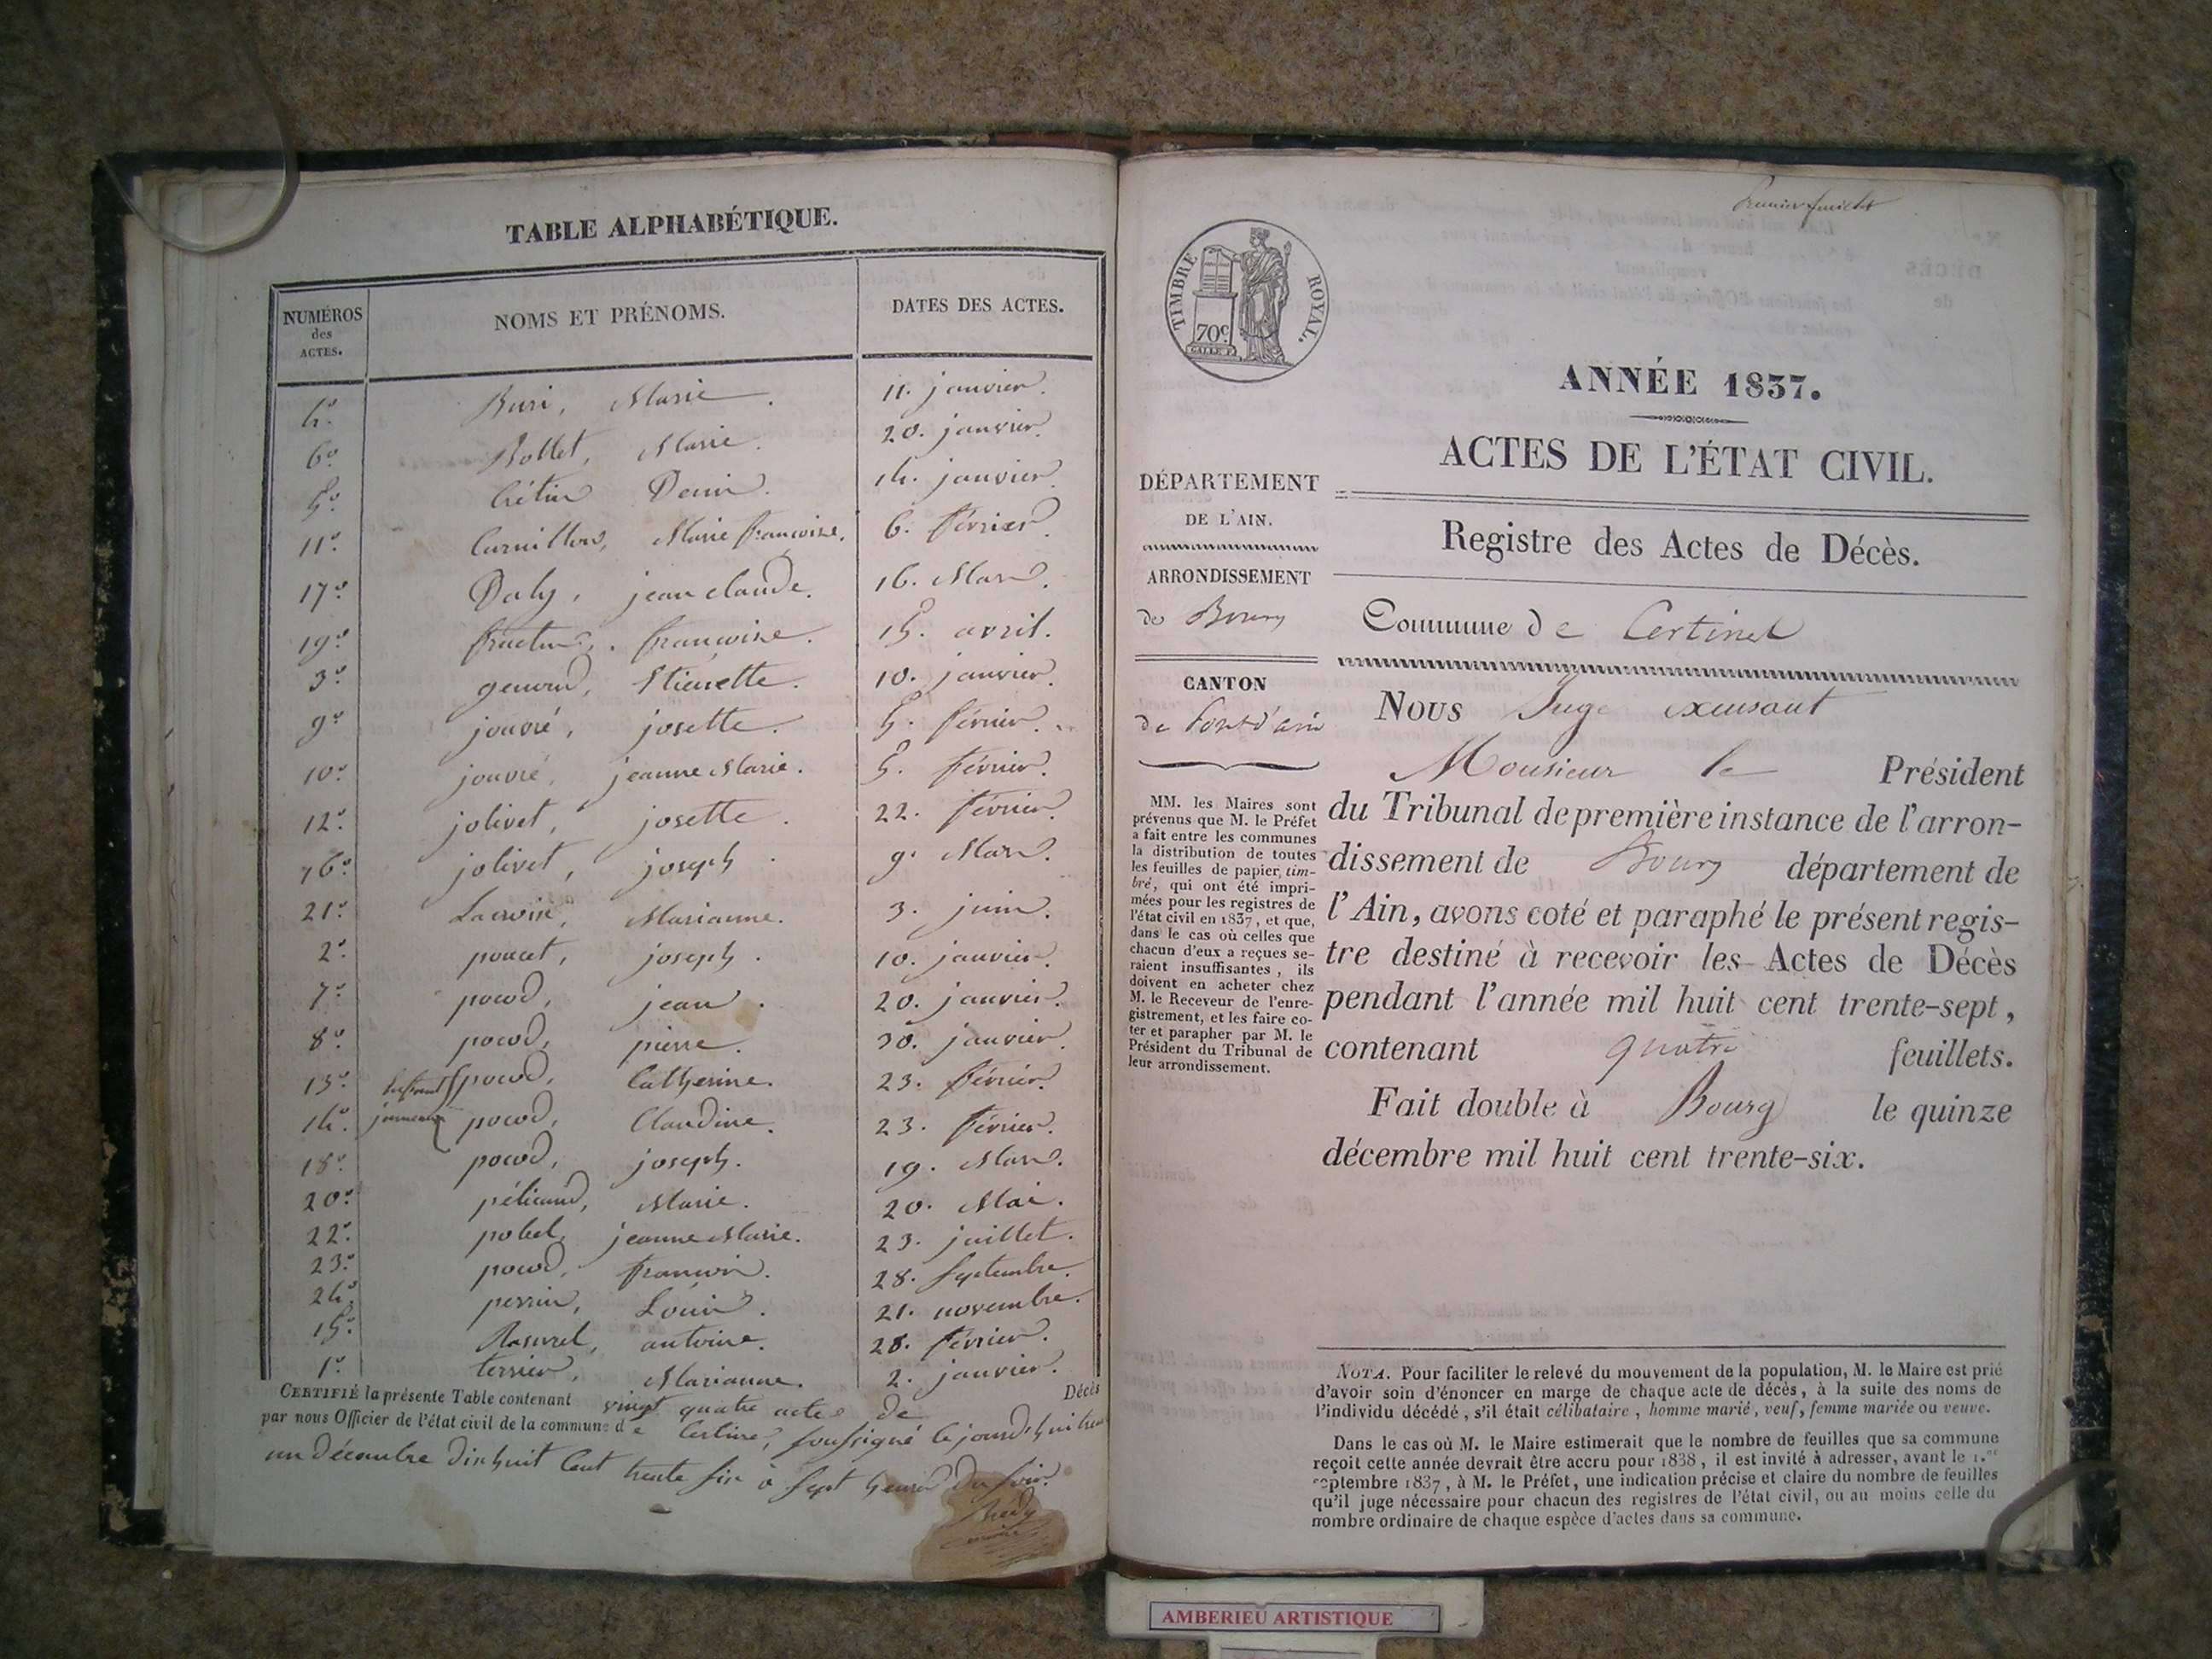 TABLE ALPHABÉTIQUE.
NUMÉROS des ACTES. NOMS ET PRÉNOMS. DATES DES ACTES.
4.° Buri, Marie. 11. janvier.
6.° Bollet, Marie. 20. janvier.
5.° Crétin Denis. 14. janvier.
11.° Marie françoise. 6. février.
17.° Daly, jean claude. 16. Mars.
19.° françoise. 15. avril.
3.° genoud, Etiennette. 10. janvier.
9.° jouvré, josette. 5. février.
10.° jouvré, jeanne Marie. 5. février.
12.° jolivet, josette. 22. février.
16.° jolivet, joseph. 9. Mars.
21.° Lacroix, Marianne. 3. juin.
2.° poncet, joseph. 10. janvier.
7.° pocod, jean. 20. janvier.
8.° pocod, pierre. 30. janvier.
13.° pocod, Catherine. 23. février.
14.° jumeaux pocod, Claudine. 23. février.
18.° pocod, joseph. 19. Mars.
20.° pélicand, Marie. 20. Mai.
22.° pobel, jeanne Marie. 23. juillet.
23.° pocod, françois. 28. Septembre.
24.° perrin, Louis. 21. novembre.
15.° antoine. 28. février.
1.° terrier, Marianne. 2. janvier.
CERTIFIÉ la présente Table contenant vingt quatre actes de Décès
par nous Officier de l'état civil de la commune de Certines, soussigné cejourd'hui trente
un décembre dix huit Cent trente six à sept heures du soir.
Premier feuillet
TIMBRE ROYAL.
70c.
GALLE F.
ANNÉE 1837.
ACTES DE L'ÉTAT CIVIL.
Registre des Actes de Décès.
DÉPARTEMENT
DE L'AIN.
ARRONDISSEMENT
de Bourg
CANTON
de Pont d'ain
MM. les Maires sont
prévenus que M. le Préfet
a fait entre les communes
la distribution de toutes
les feuilles de papier tim-
bré, qui ont été impri-
mées pour les registres de
l'état civil en 1837, et que,
dans le cas où celles que
chacun d'eux a reçues se-
raient insuffisantes, ils
doivent en acheter chez
M. le Receveur de l'enre-
gistrement, et les faire co-
ter et parapher par M. le
Président du Tribunal de
leur arrondissement.
Commune de Certines
Nous Juge excusant
Monsieur le Président
du Tribunal de première instance de l'arron-
dissement de Bourg département de
l'Ain, avons coté et paraphé le présent regis-
tre destiné à recevoir les Actes de Décès
pendant l'année mil huit cent trente-sept,
contenant quatre feuillets.
Fait double à Bourg le quinze
décembre mil huit cent trente-six.
NOTA. Pour faciliter le relevé du mouvement de la population, M. le Maire est prié
d'avoir soin d'énoncer en marge de chaque acte de décès, à la suite des noms de
l'individu décédé, s'il était célibataire, homme marié, veuf, femme mariée ou veuve.
Dans le cas où M. le Maire estimerait que le nombre de feuilles que sa commune
reçoit cette année devrait être accru pour 1838, il est invité à adresser, avant le 1.er
septembre 1837, à M. le Préfet, une indication précise et claire du nombre de feuilles
qu'il juge nécessaire pour chacun des registres de l'état civil, ou au moins celle du
nombre ordinaire de chaque espèce d'actes dans sa commune.
AMBERIEU ARTISTIQUE